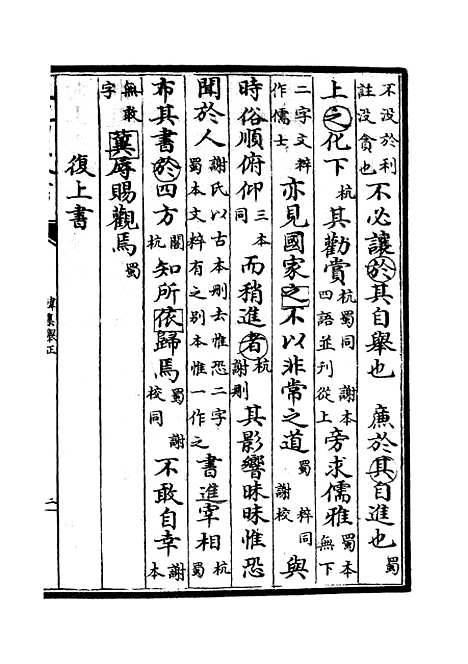 不没於利註没貪也不必讓於其自舉也　廉於其自進也蜀
上之化下杭其勸賞杭蜀同謝本四語並刊從上旁求儒雅蜀本無下
二字文粹作儒士亦見國家之不以非常之道蜀粹同謝校與
時俗順俯仰三本同而稍進者杭謝刪其影響昧昧惟恐
聞於人謝氏以古本刪去惟恐二字蜀本文粹有之别本惟一作之書進宰相杭蜀
布其書於四方閣杭知所依歸焉蜀謝校同不敢自幸謝本
無敢字冀辱賜觀焉蜀
復上書
韓集舉正